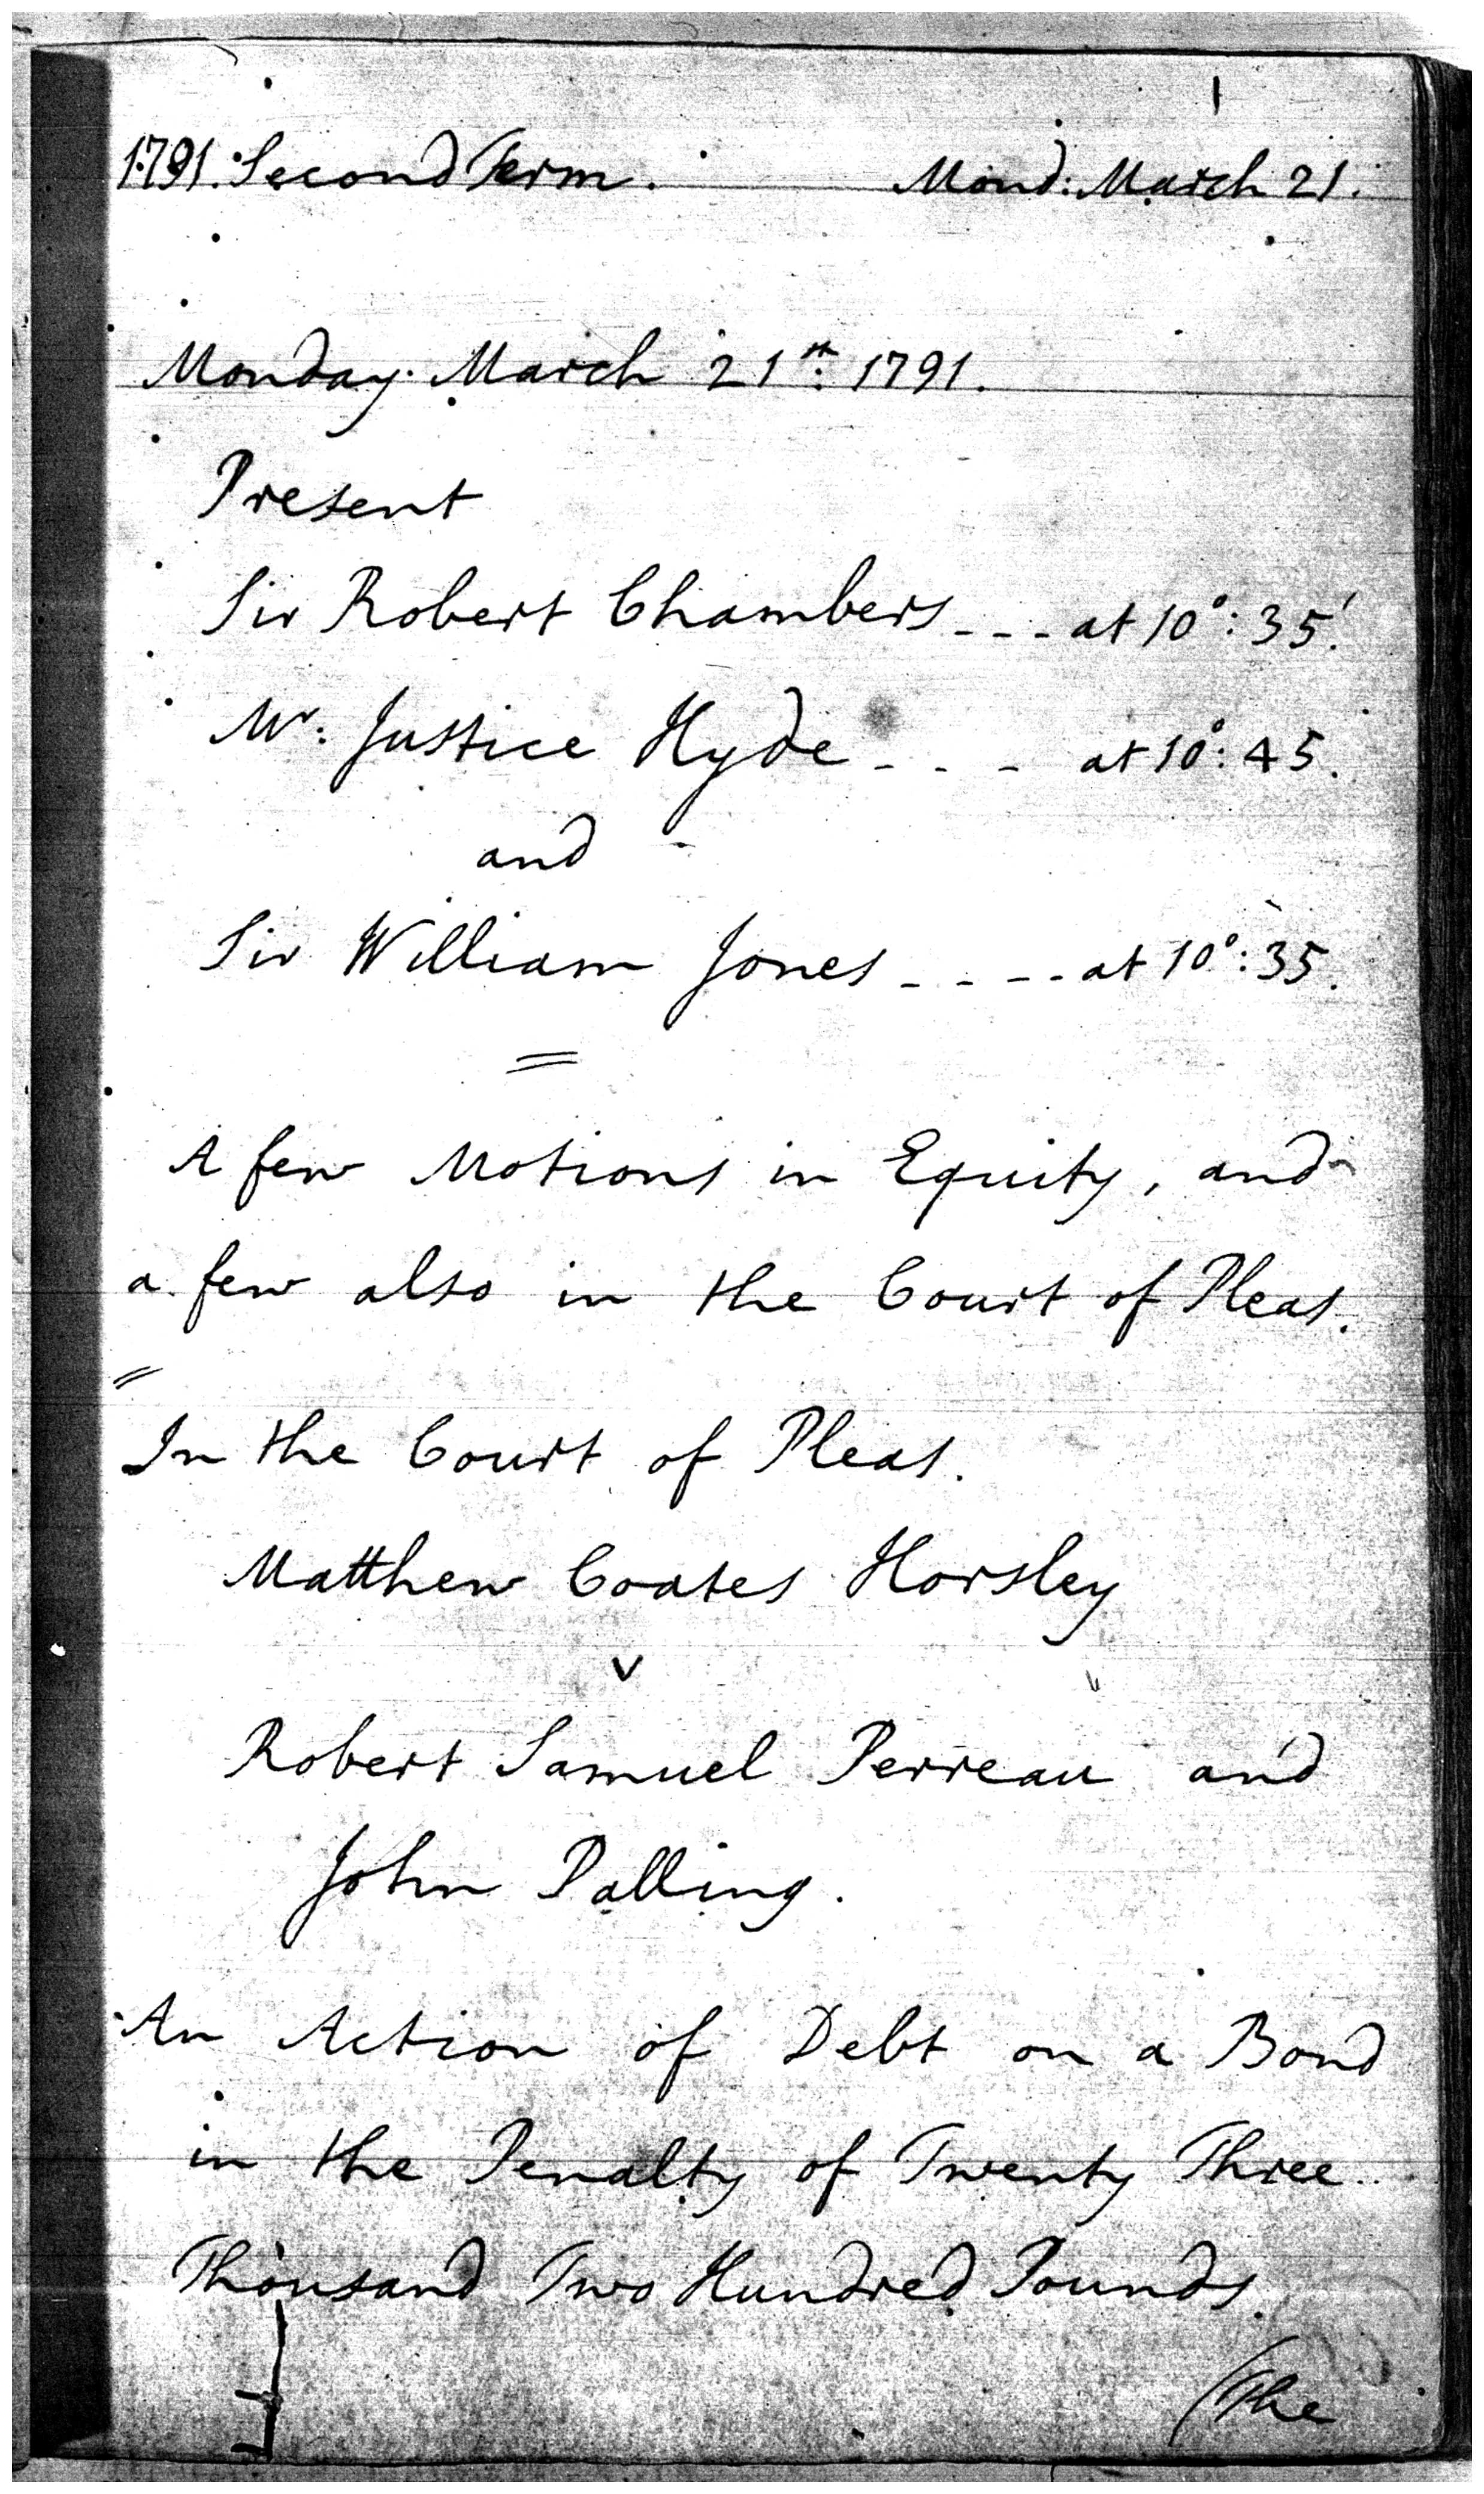 1
1791. Second Term. Mond: March 21.
Monday. March 21st: 1791.
Present
Sir Robert Chambers - - - at 10°: 35'.
Mr: Justice Hyde - - - at 10°: 45.
and
Sir William Jones - - - - at 10°: 35.
=
A few Motions in Equity, and
a few also in the Court of Pleas.
=
In the Court of Pleas.
Matthew Coates Horsley
v
Robert Samuel Perreau and
John Palling.
An Action of Debt on a Bond
in the Penalty of Twenty Three
Thousand Two Hundred Pounds.
(The